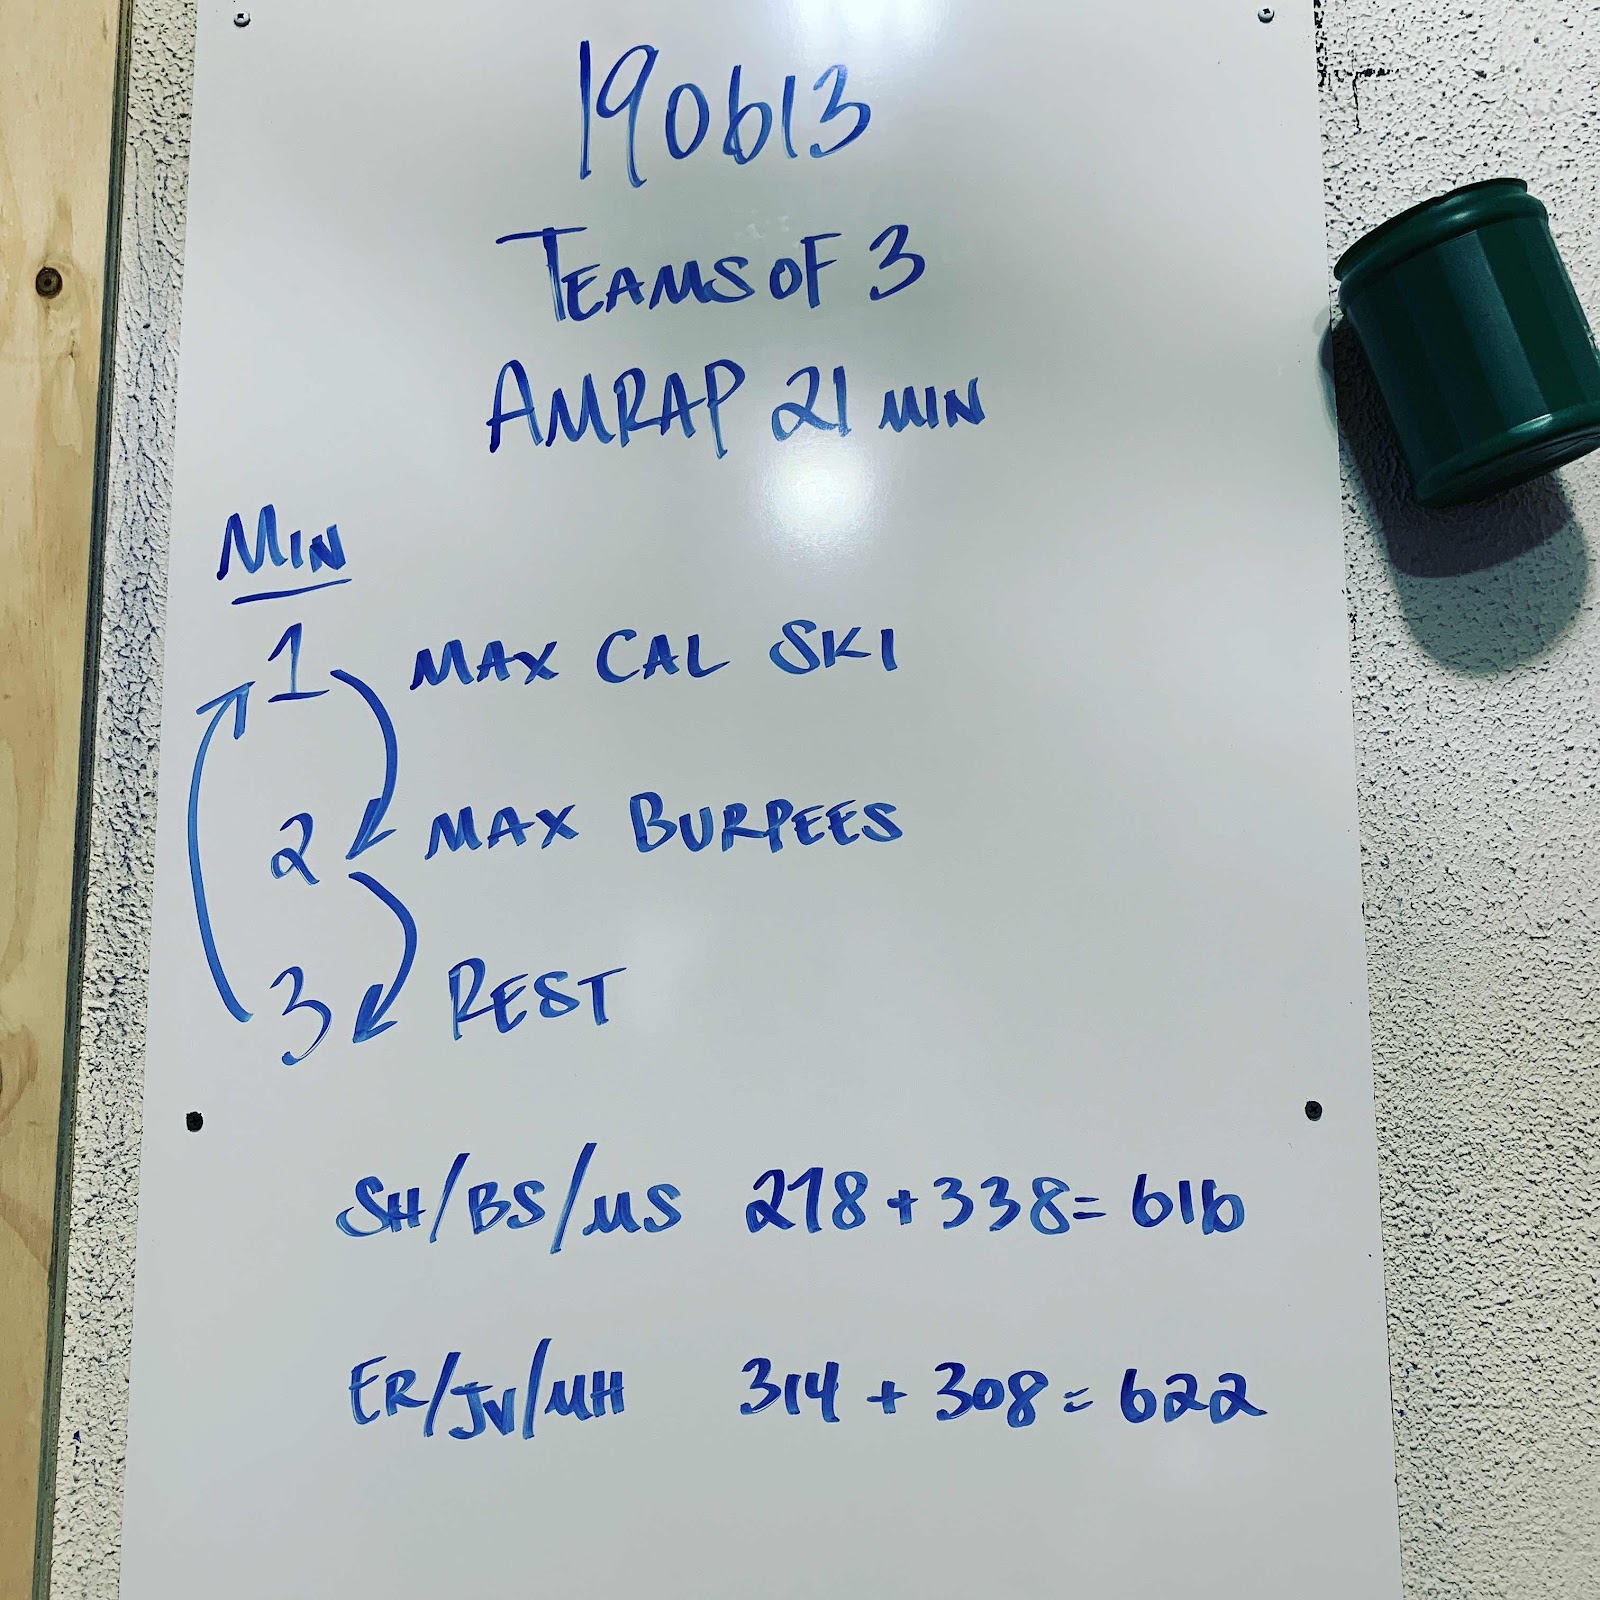 190613
TEAMS OF 3
AMRAP 21 MIN
MIN
1 MAX CAL SKI
2 MAX BURPEES
3 REST
SH/BS/MS 278+338=616
ER/JV/MH 314+308=622